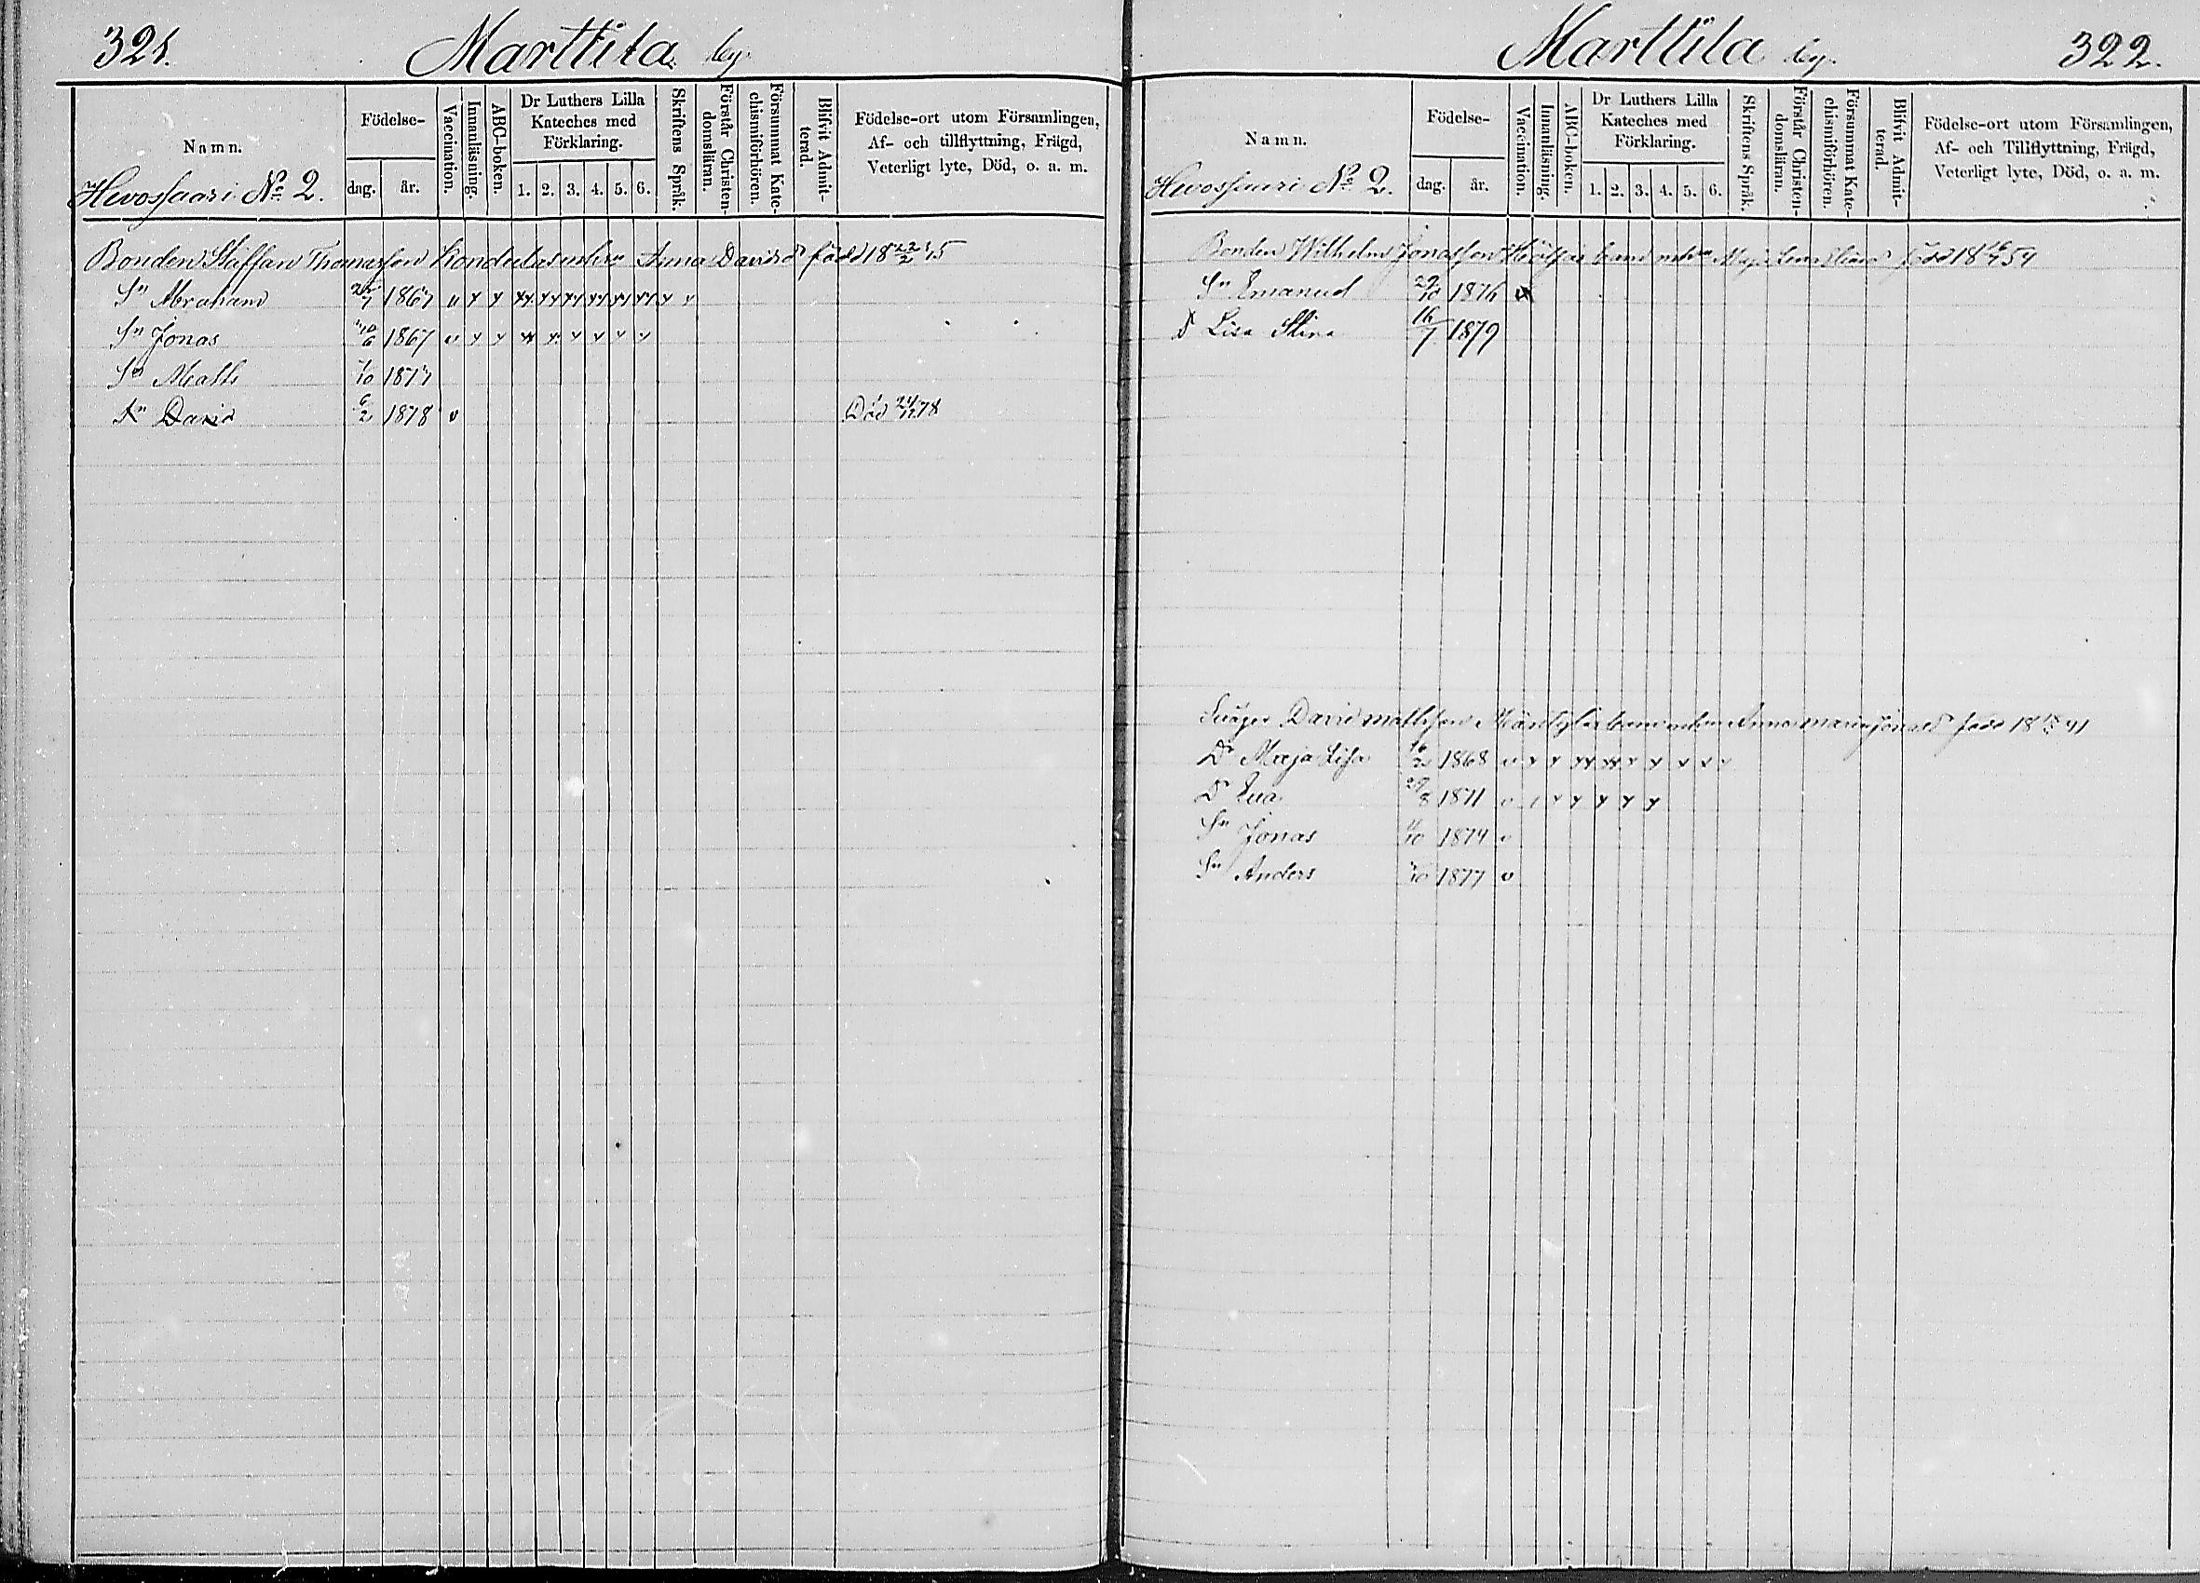 321.
Marttila by.
Namn.
Hevossaari No 2.
Födelse-
dag. år.
Vaccination.
Innanläsning.
ABC-boken.
Dr Luthers Lilla
Kateches med
Förklaring.
1. 2. 3. 4. 5. 6.
Skriftens Språk.
Förstår Christen-
domsläran.
Försummat Kate-
chismiförhören.
Blifvit Admit-
terad.
Födelse-ort utom Församlingen,
Af- och tillflyttning, Frägd,
Veterligt lyte, Död, o. a. m.
Bonden Staffan Thomasson Anna Davidsd född 18 22/2 45
Sn Abraham 1867
Sn Jonas 1867
Sn Matts 1877
Sn David 6/2 1878 v Död 24/12 78
Marttila by.
322.
Namn.
Hevossaari No 2.
Födelse-
dag. år.
Vaccination.
Innanläsning.
ABC-boken.
Dr Luthers Lilla
Kateches med
Förklaring.
1. 2. 3. 4. 5. 6.
Skriftens Språk.
Förstår Christen-
domsläran.
Försummat Kate-
chismiförhören.
Blifvit Admit-
terad.
Födelse-ort utom Församlingen,
Af- och Tillflyttning, Frägd,
Veterligt lyte, Död, o. a. m.
Bonden Wilhelm Jonasson barn född 18 54
Sn Emanuel 29/10 1876
D Lisa Stina 16/7 1879
David Mattsson Anna Maria Jonasd född 18 41
Dr Maja Lisa 16/2 1868
Dr Eva 29/8 1871
Sn Jonas 1874
Sn Anders 1877 v